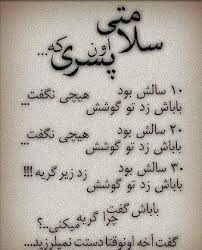 سلامتی
اون
پسری که...
۱۰ سالش بود
باباش زد تو گوشش هیچی نگفت...
۲۰ سالش بود
باباش زد تو گوشش هیچی نگفت...
۳۰ سالش بود
باباش زد تو گوشش زد زیر گریه !!!
باباش گفت
چرا گریه میکنی..؟
گفت آخه اونوقتا دستت نمیلرزید...